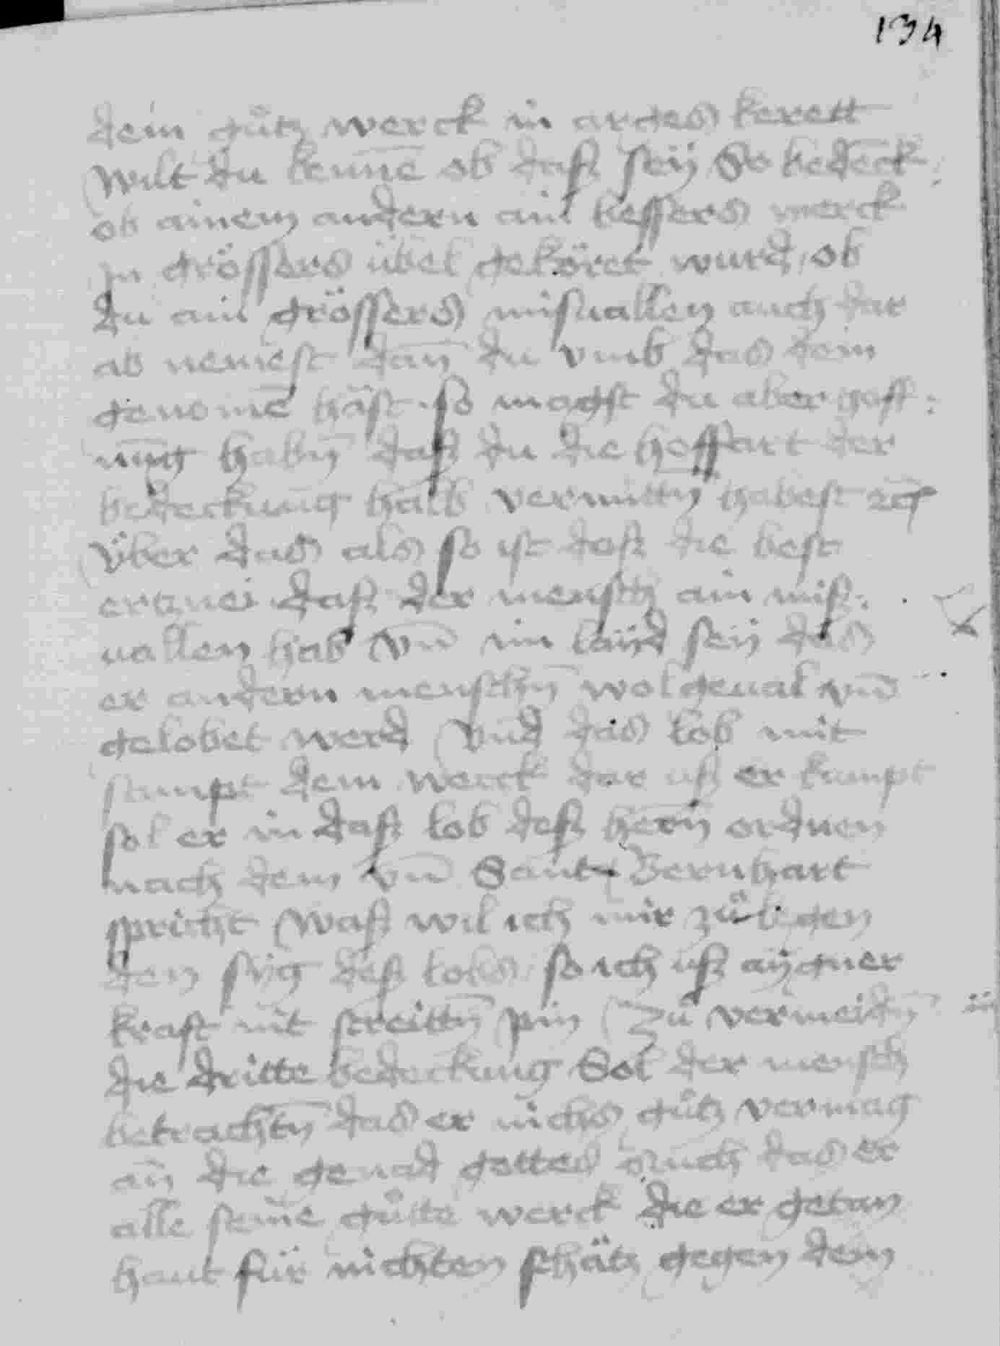 134
dein gůtz werck in arges kerett
Wilt du kenne͞ ob daß seÿ So bedeck
ob ainem andern ain bessers werck
in grössers übel geköret wurd, ob
du ain grössers misuallen auch dar
ab nemest dan̄ du vmb das dein
genome͞ häst so magst du aber hoff:
nūng habn̄ daß du die hoffart der
bedeckung halb vermittn̄ habest
Über das als so ist daß die best
ertznei daß der mensch ain miß:
uallen hab vn̄ im laÿd seÿ das
er andern menschn̄ wolgeual vn̄
gelobet werd Vnd das lob mit
sampt dem werck dar uß er kumpt
sol er in daß lob deß hern̄ ordnen
nach dem vn̄ Sant Bernhart
spricht Waß wil ich mir zůlegen
den syg deß lobs so ich uß aÿgner
kraft nit streittn̄ pin Zů vermeidn̄
die dritte bedeckung Sol der mensch
betrachtn̄ das er nichs gůtz vermag
an̄ die genad gottes Auch das er
alle seine gůtte werck die er getan
haut für nichten schätz gegen dem